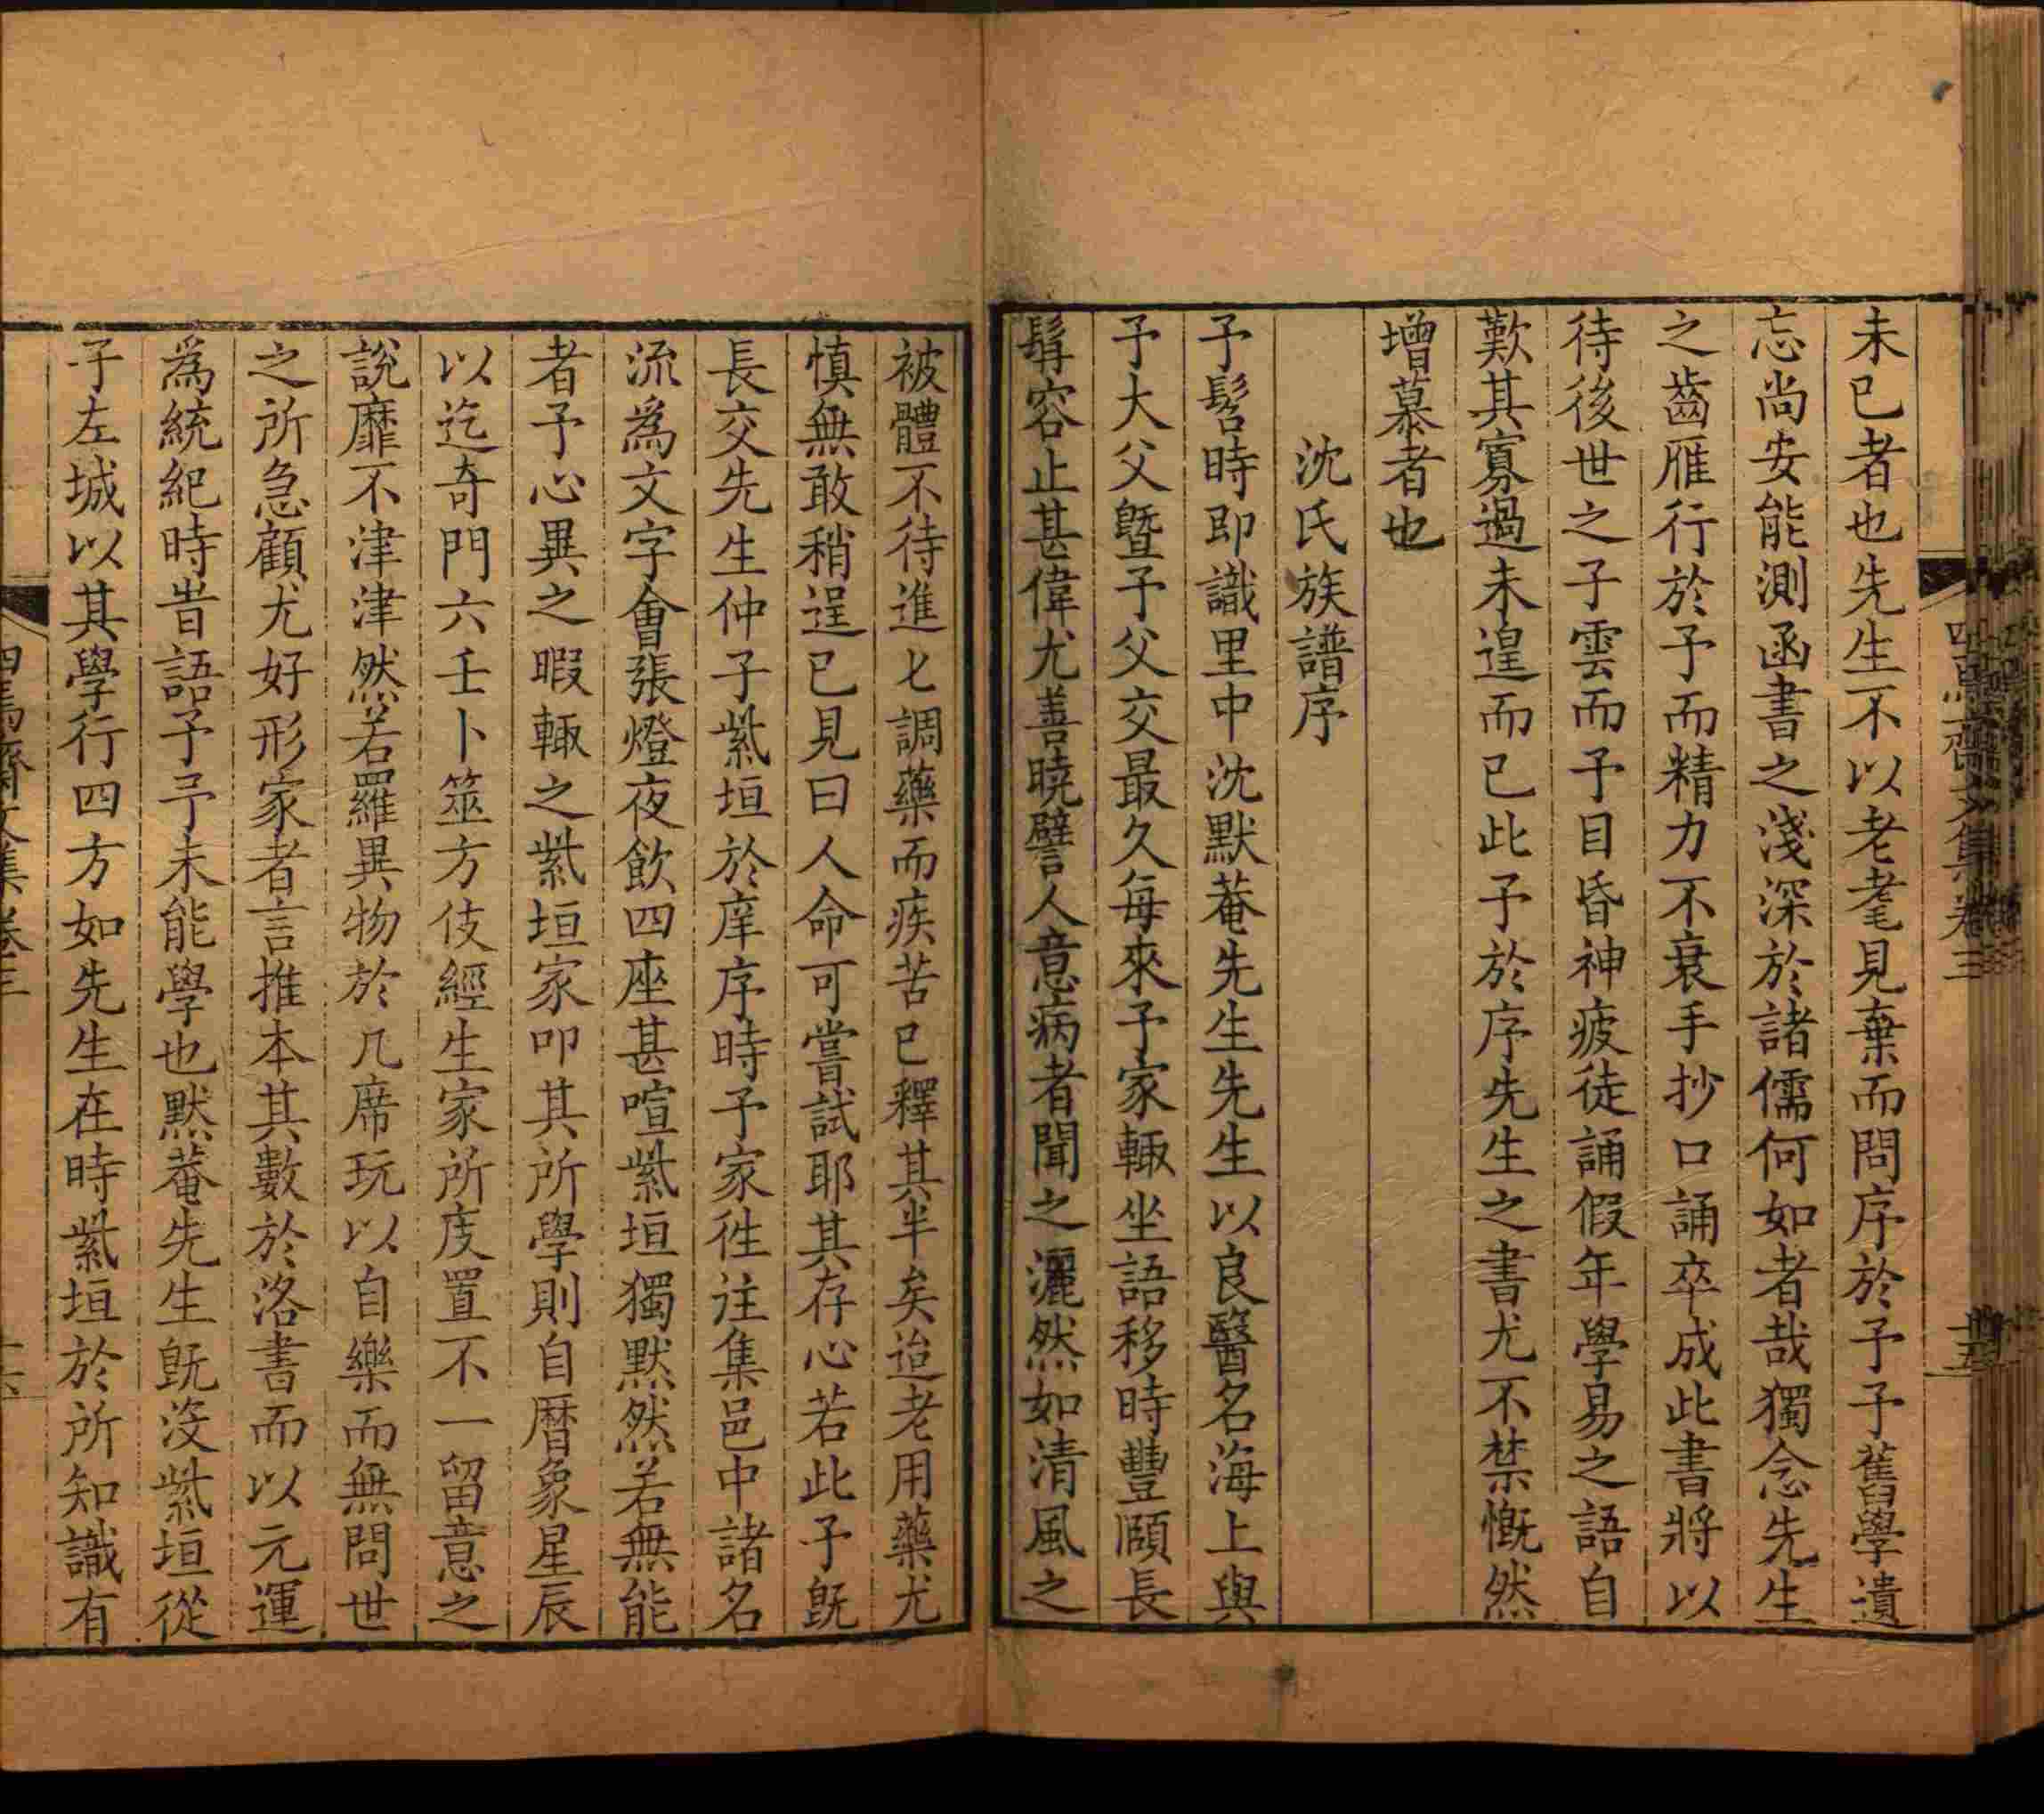 未已者也先生不以老耄見棄而問序於予予舊學遺
忘尚安能測函書之淺深於諸儒何如者哉獨念先生
之齒雁行於予而精力不衰手抄口誦卒成此書將以
待後世之子雲而予目昏神疲徒誦假年學易之語自
歎其寡過未遑而已此予於序先生之書尤不禁慨然
增慕者也
沈氏族譜序
予髫時即識里中沈默菴先生先生以良醫名海上與
予大父暨予父交最久每來予家輙坐語移時豐頤長
髯容止甚偉尤善曉譬人意病者聞之灑然如清風之
被體不待進匕調藥而疾苦已釋其半矣迨老用藥尤
慎無敢稍逞已見曰人命可嘗試耶其存心若此予旣
長交先生仲子紫垣於庠序時予家徃注集邑中諸名
流爲文字會張燈夜飲四座甚喧紫垣獨默然若無能
者予心異之暇輙之紫垣家叩其所學則自曆象星辰
以迄奇門六壬卜筮方伎經生家所庋置不一留意之
說靡不津津然若羅異物於几席玩以自樂而無問世
之所急顧尤好形家者言推本其數於洛書而以元運
爲統紀時昔語予予未能學也默菴先生旣沒紫垣從
子左城以其學行四方如先生在時紫垣於所知識有
四焉齋文集卷三
十五